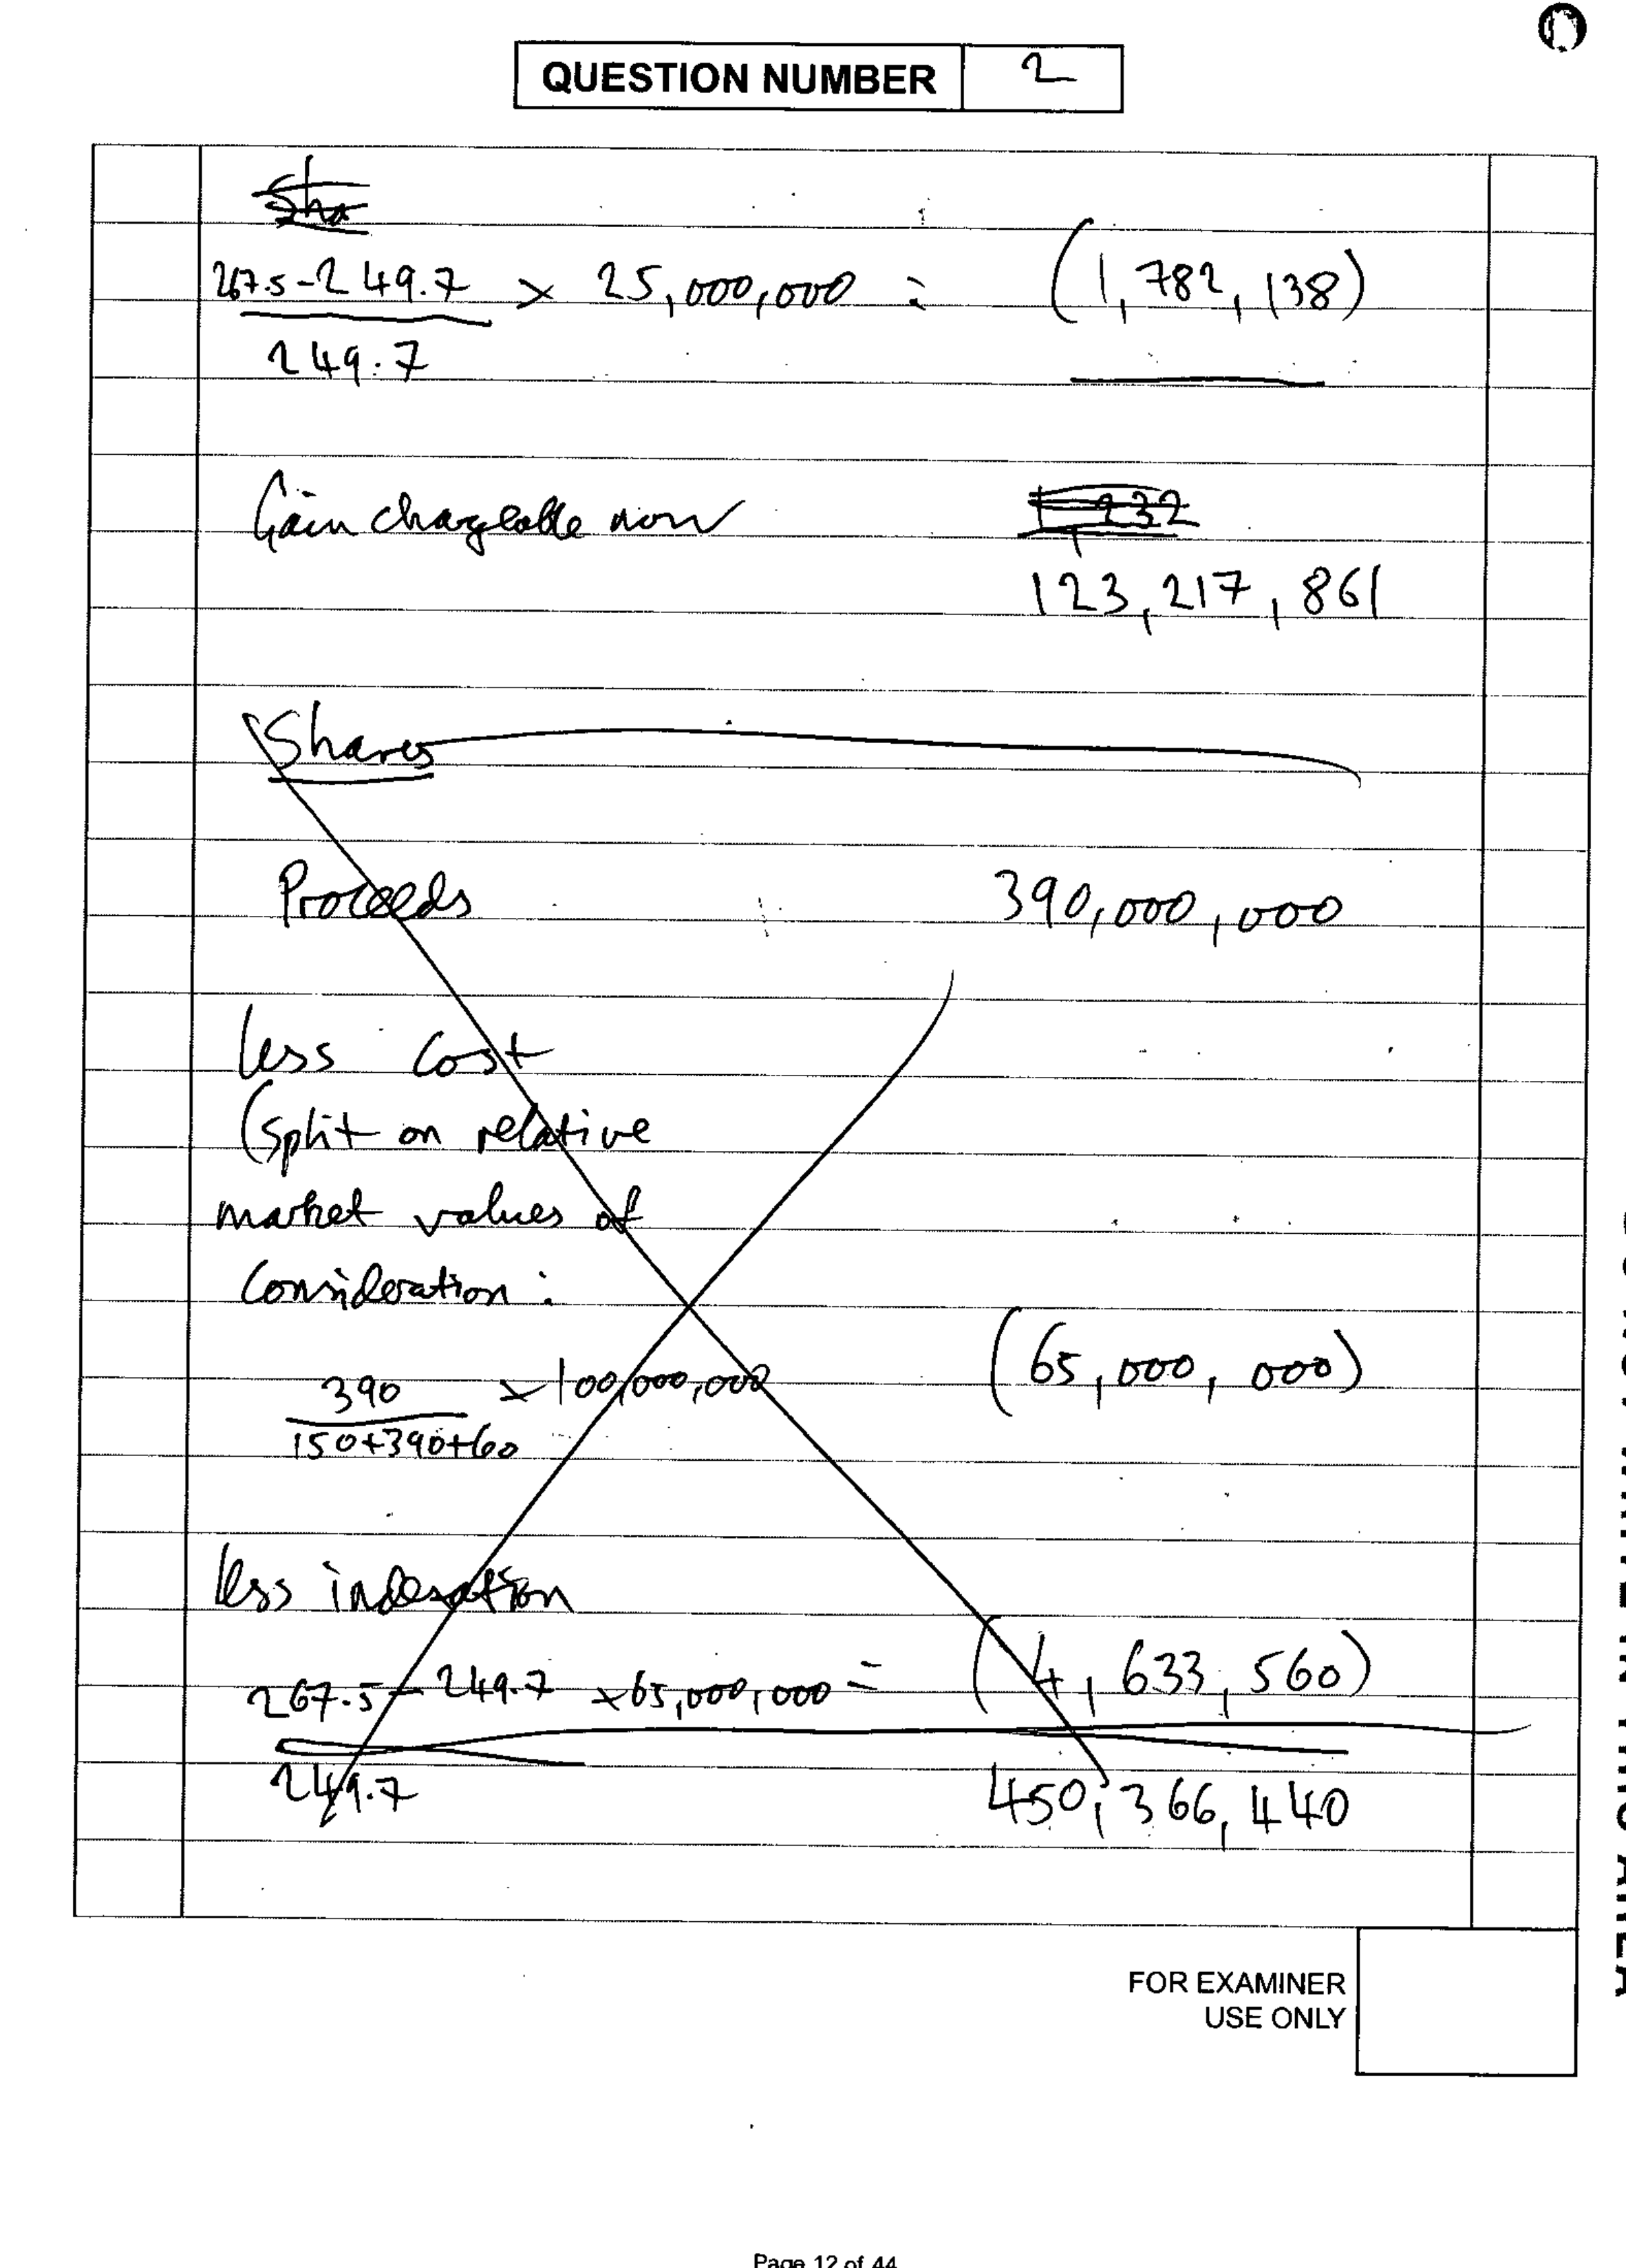 QUESTION NUMBER 2
Sha
267.5-249.7 × 25,000,000 = (1,782,138)
249.7
Gain chargeable now
123,217,861
Shares
Proceeds 390,000,000
less Cost
(split on relative
market values of
Consideration:
390 × 100,000,000 (65,000,000)
150+390+60
less indexation
267.5-249.7 × 65,000,000 = (4,633,560)
249.7
450,366,440
FOR EXAMINER
USE ONLY
Page 12 of 44